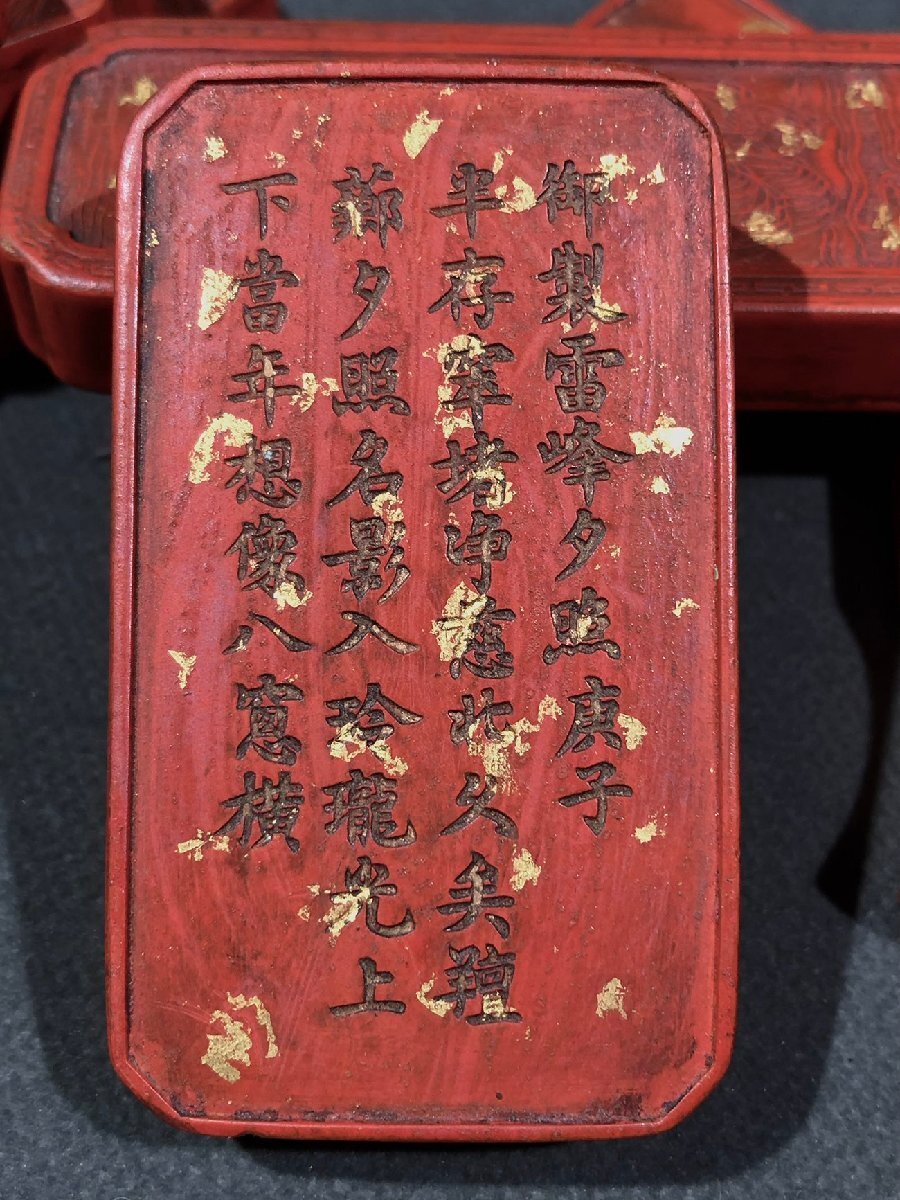 御製雷峰夕照庚子
半存窣堵净慈北久矣羶
薌夕照名影入玲瓏光上
下當年想像八窻橫